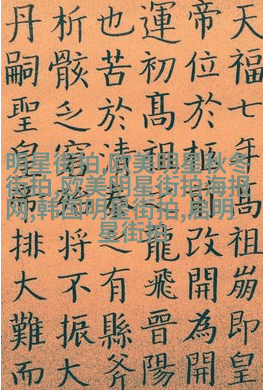 天福七年高祖崩即皇
帝位於改開為開
運初高祖龍飛晉陽
也苦於清有縣斧
析骸乏窮將不振大
丹嗣聖皇帝排大難而
明星街拍,欧美明星秋冬
街拍,欧美明星街拍海报
网,韩国明星街拍,唐明
星街拍